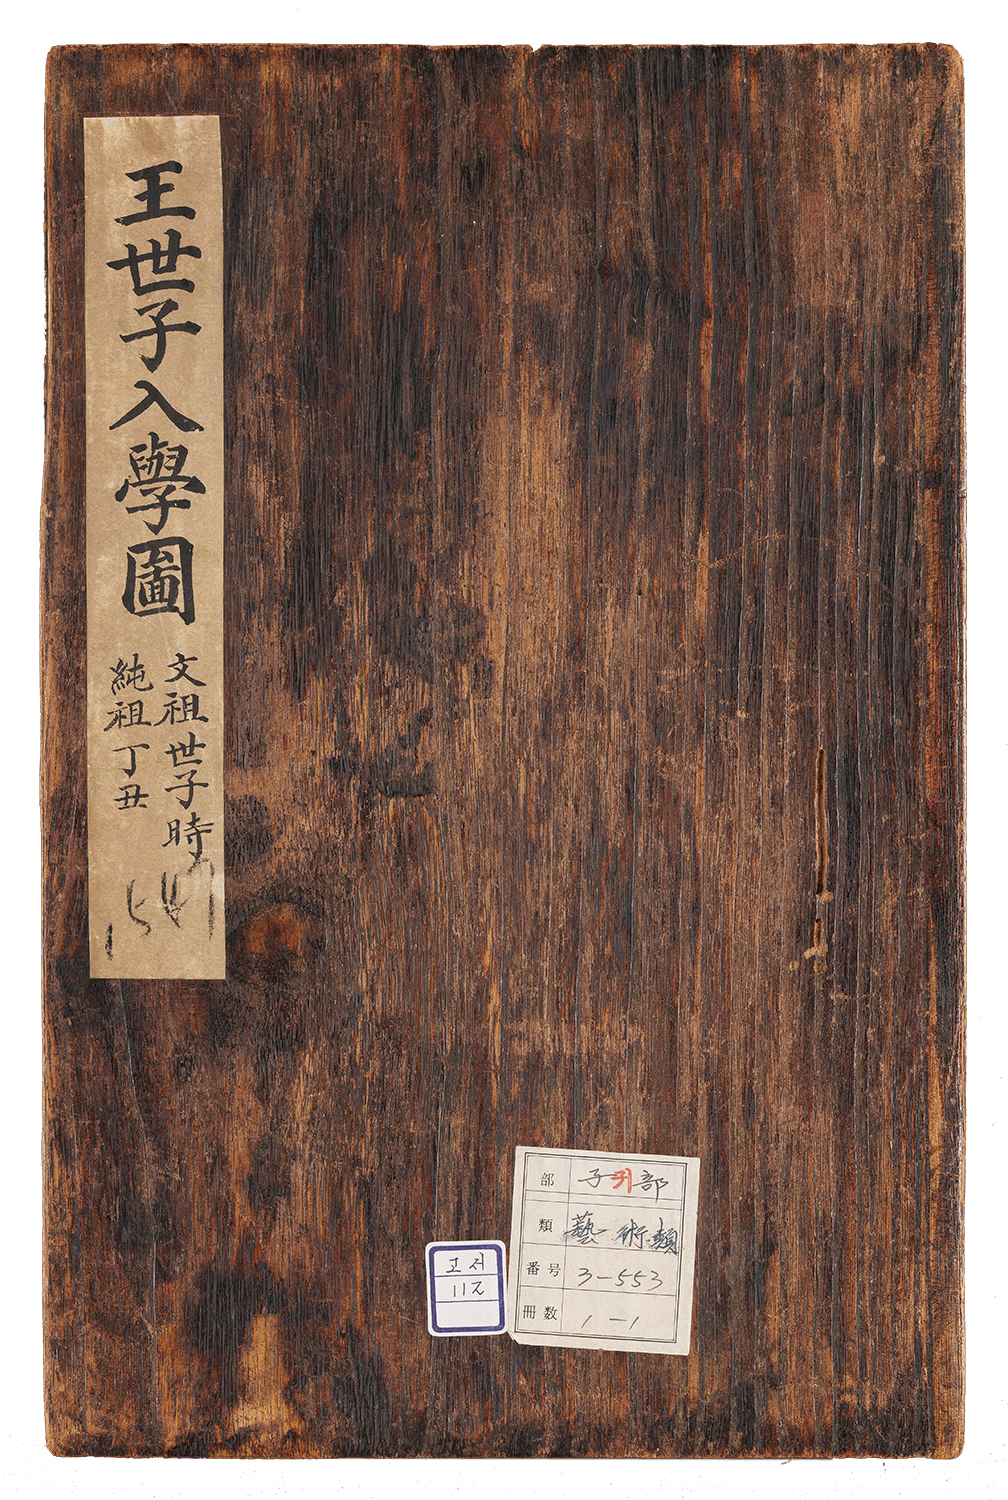 王世子入學圖
文祖世子時
純祖丁丑
部 子귀部
類 藝術類
番号 3-553
冊数 1-1
고저